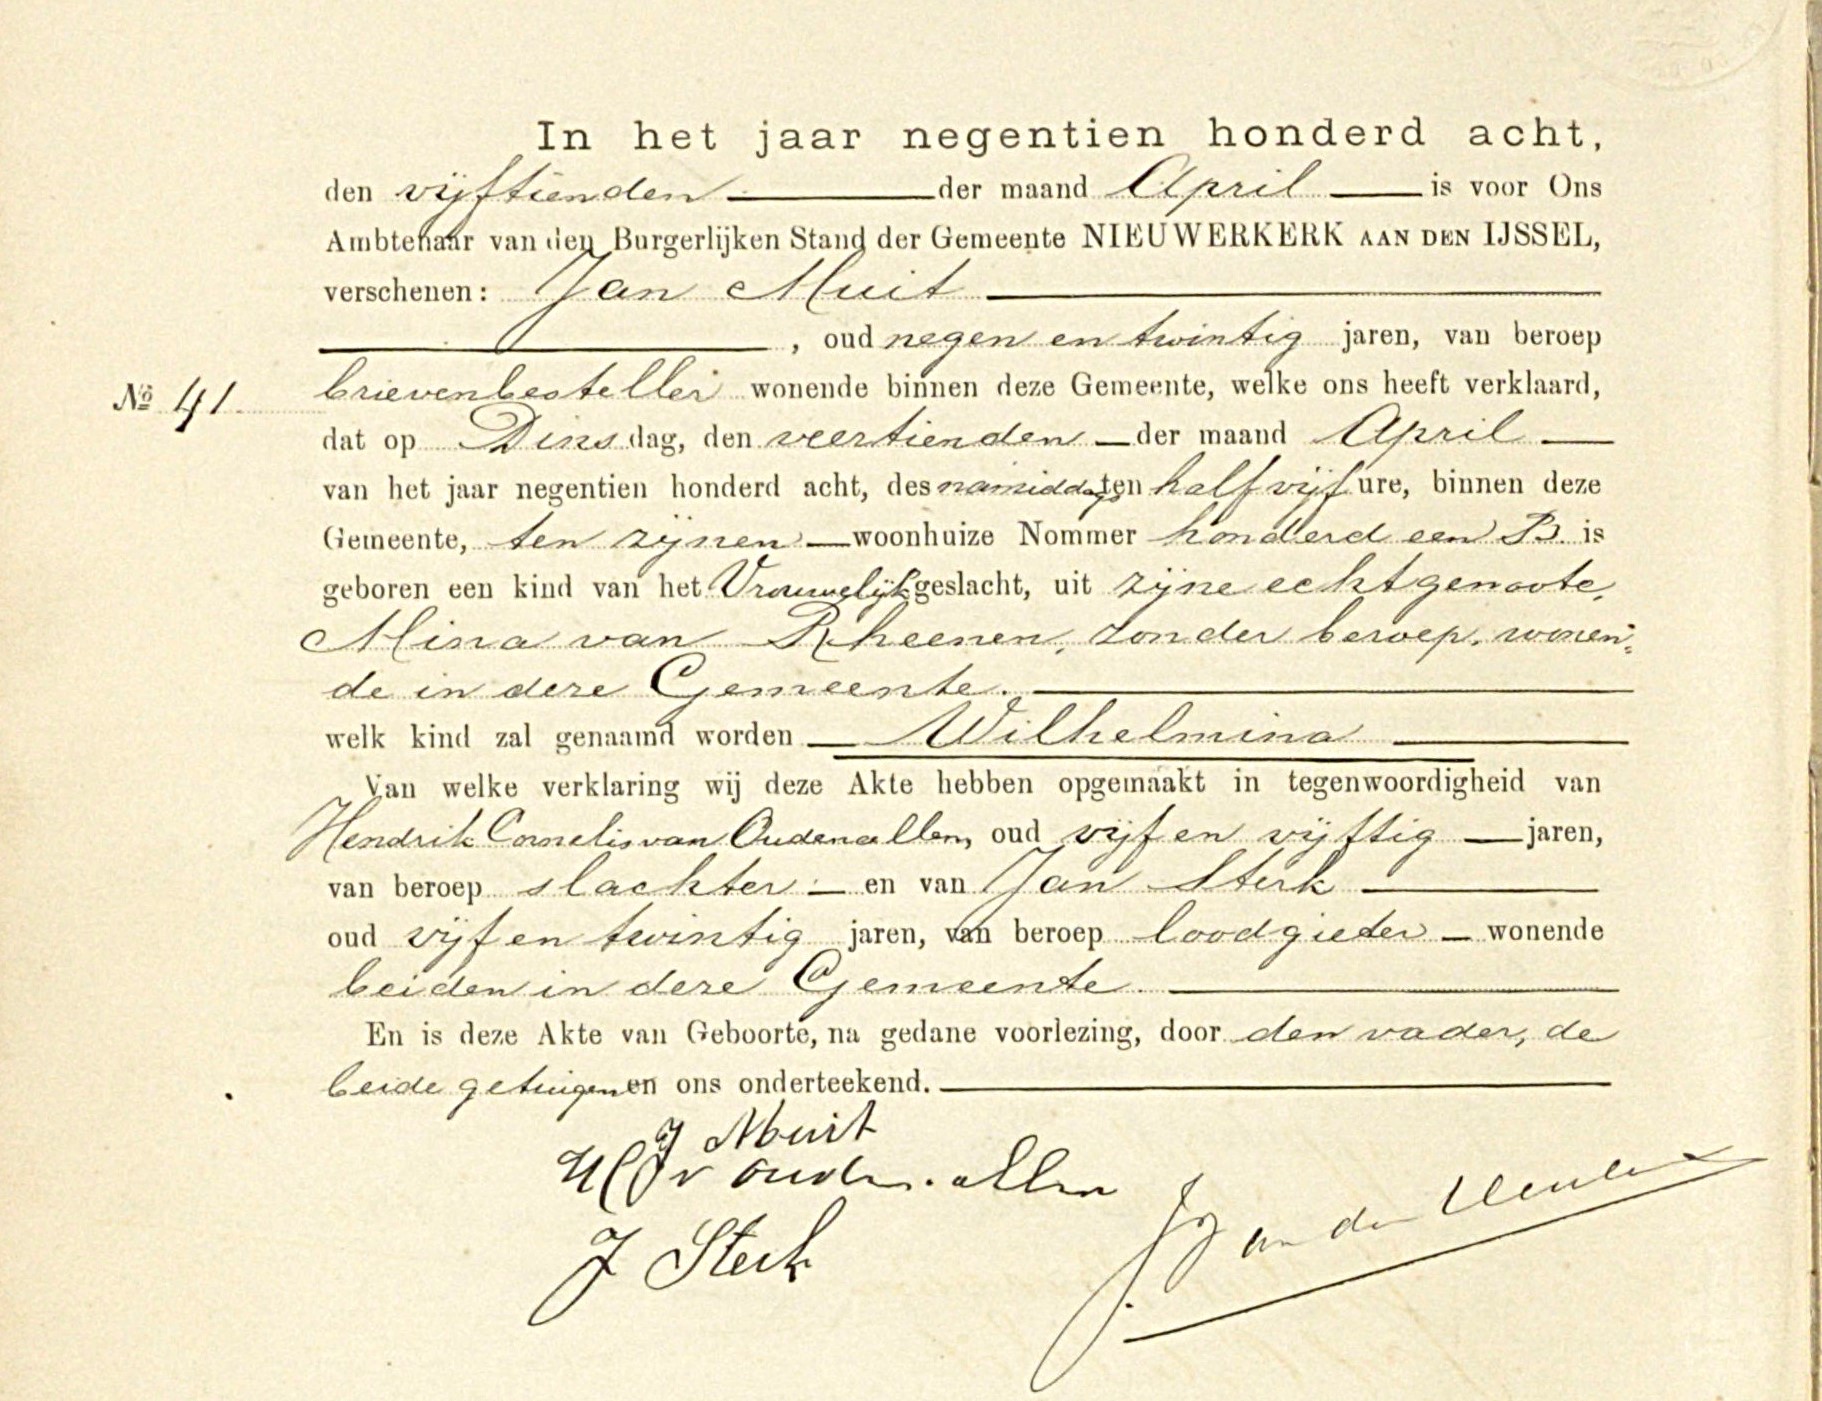 In het jaar negentien honderd acht,
den vijftienden der maand April is voor Ons
Ambtenaar van den Burgerlijken Stand der Gemeente NIEUWERKERK AAN DEN IJSSEL,
verschenen: Jan Muit
, oud negen en twintig jaren, van beroep
No 41. brievenbesteller wonende binnen deze Gemeente, welke ons heeft verklaard,
dat op Dinsdag, den veertienden der maand April
van het jaar negentien honderd acht, des namiddags ten half vijf ure, binnen deze
Gemeente, ten zijnen woonhuize Nommer honderd een B. is
geboren een kind van het Vrouwelijk geslacht, uit zijne echtgenoote,
Mina van Rheenen, zonder beroep, wonen=
de in deze Gemeente.
welk kind zal genaamd worden Wilhelmina
Van welke verklaring wij deze Akte hebben opgemaakt in tegenwoordigheid van
Hendrik Cornelis van Oudenallen, oud vijf en vijftig jaren,
van beroep slachter en van Jan Sterk
oud vijf en twintig jaren, van beroep loodgieter wonende
beiden in deze Gemeente.
En is deze Akte van Geboorte, na gedane voorlezing, door den vader, de
beide getuigen en ons onderteekend.
J Muit
v ouden.allen
J Sterk